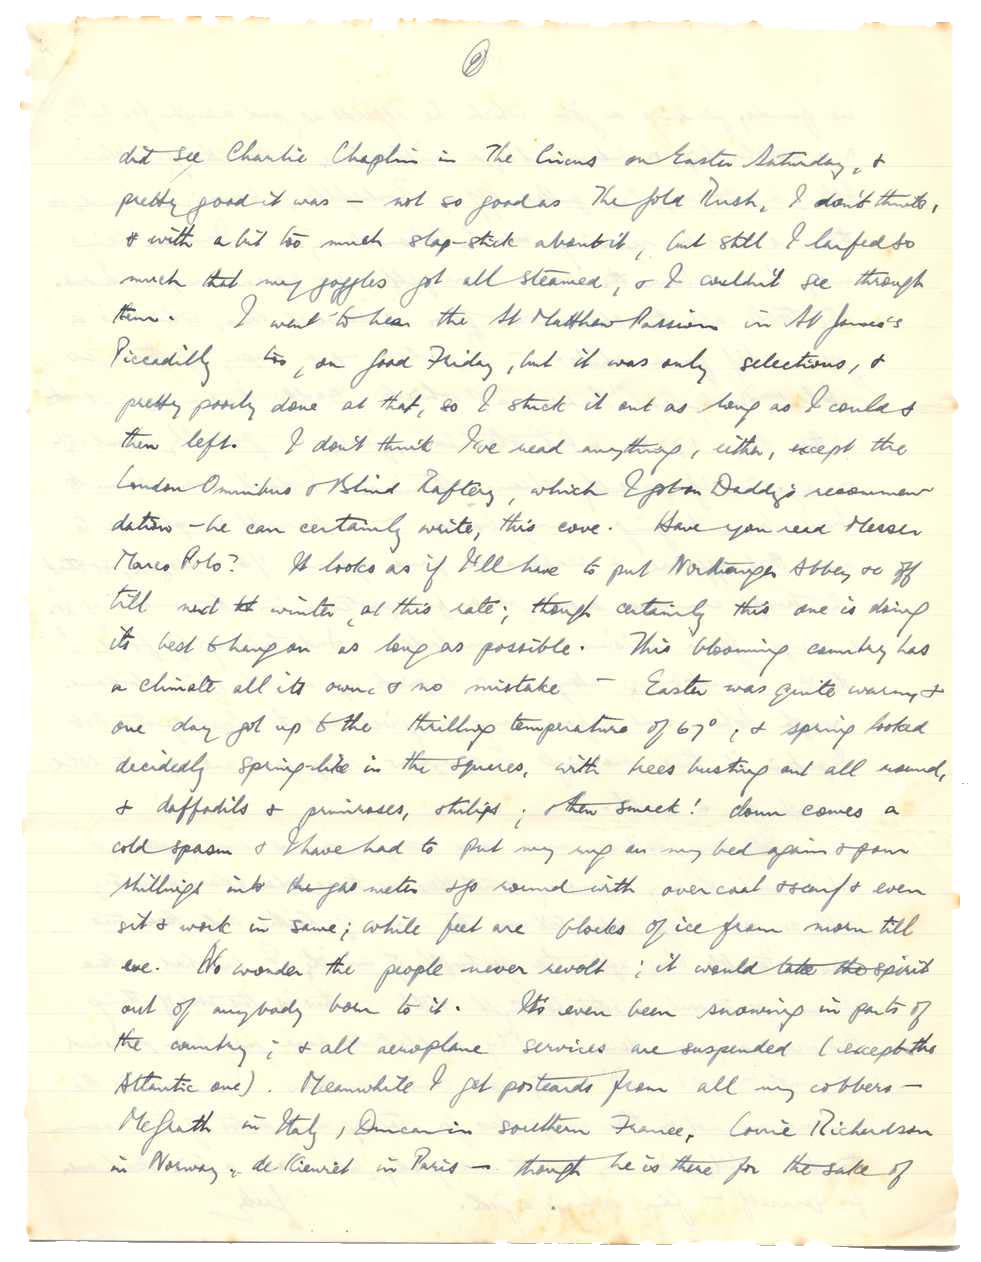 ②
did see Charlie Chaplin in The Circus on Easter Saturday, &
pretty good it was — not so good as The Gold Rush, I don't think,
& with a bit too much slap-stick about it, but still I larfed so
much that my goggles got all steamed, & I couldn't see through
them. I went to hear the St Matthew Passion in St James's
Piccadilly too, on Good Friday, but it was only selections, &
pretty poorly done at that, so I stuck it out as long as I could &
then left. I don't think I've read anything, either, except the
London Omnibus & Blind Raftery, which I got on Daddy's recommen-
dation — he can certainly write, this cove. Have you read Messer
Marco Polo? It looks as if I'll have to put Northanger Abbey &c off
till next winter, at this rate; though certainly this one is doing
its best to hang on as long as possible. This blooming country has
a climate all its own, & no mistake — Easter was quite warm, &
one day got up to the thrilling temperature of 67°, & spring looked
decidedly spring-like in the squares, with trees busting out all round,
& daffodils & primroses, & tulips; & then smack! down comes a
cold spasm & I have had to put my rug on my bed again & pour
shillings into the gas meter & go round with overcoat & scarf & even
sit & work in same; while feet are blocks of ice from morn till
eve. No wonder the people never revolt; it would take the spirit
out of anybody born to it. It's even been snowing in parts of
the country; & all aeroplane services are suspended (except the
Atlantic one). Meanwhile I get postcards from all my cobbers —
McGrath in Italy, Duncan in southern France, Lorrie Richardson
in Norway, de Kiewiet in Paris — though he is there for the sake of